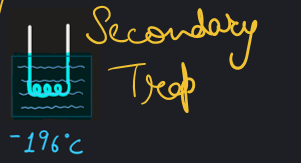 Secondary
Trap
-196°C